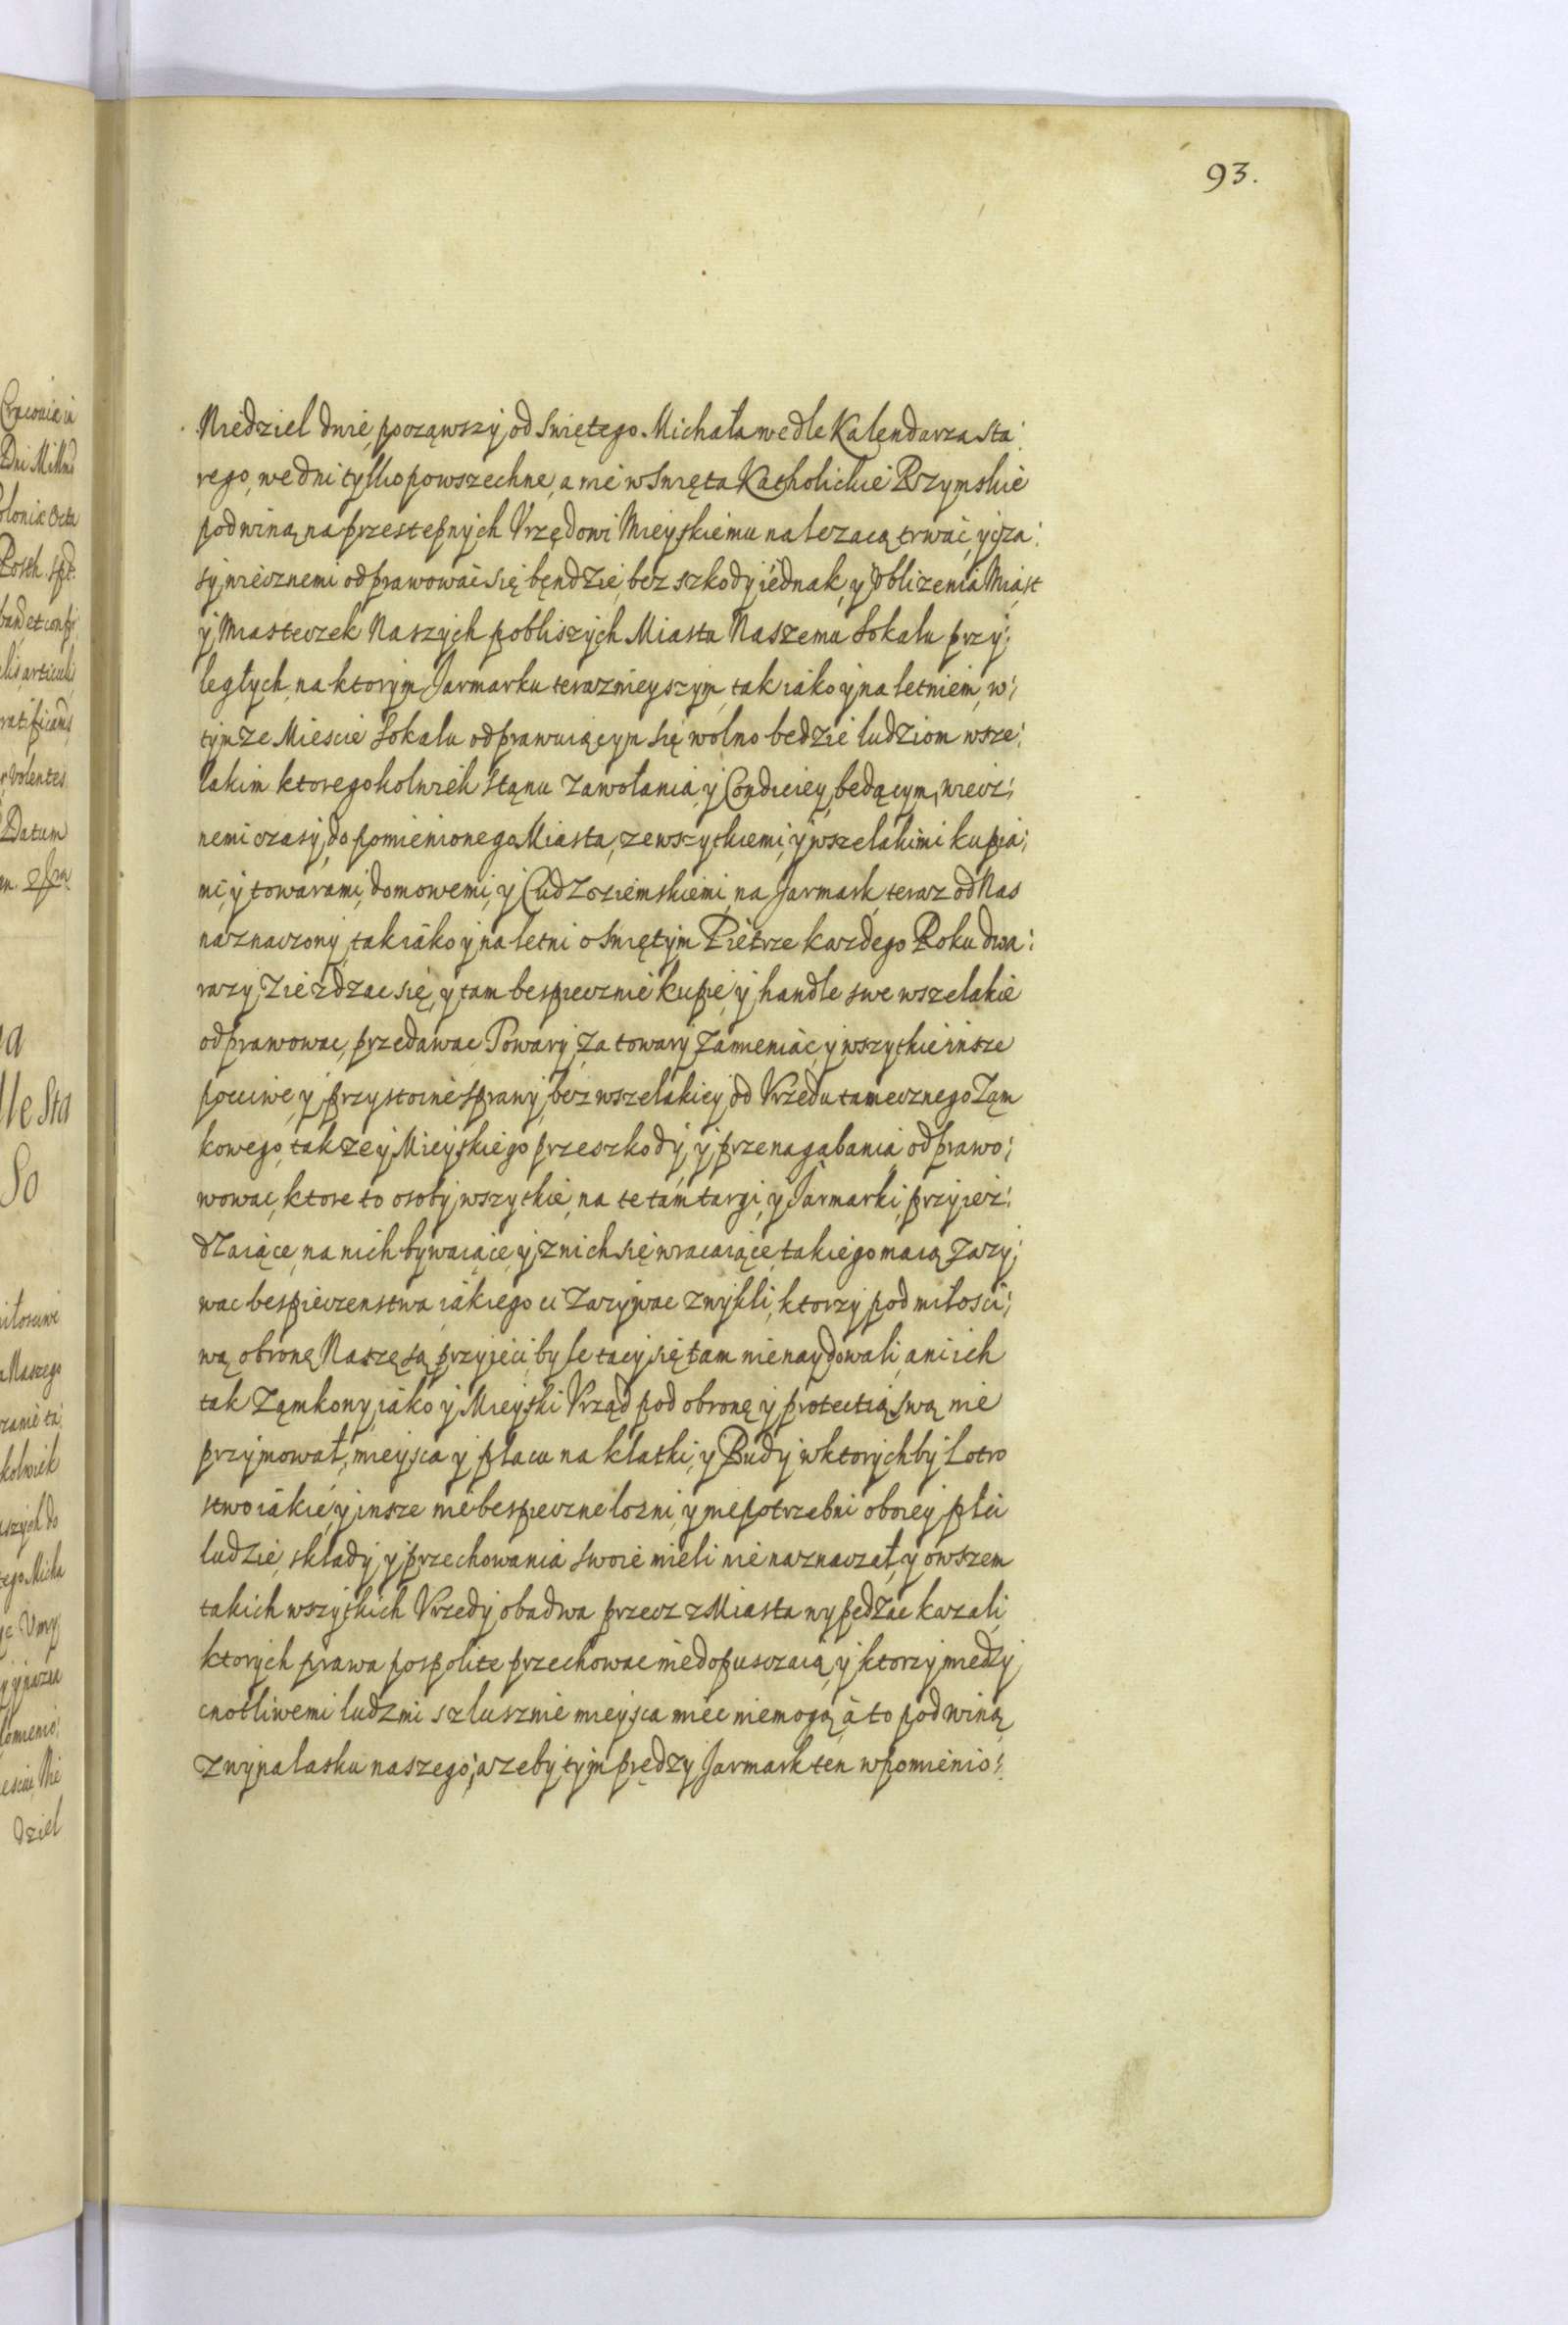 93.
Niedziel dwie, począwszy od Swiętego Michała wedle Kalendarza sta:
rego, we dni tylko powszechne, a nie w Swięta Katholickie Rzymskie
pod winą na przestępnych Vrzędowi Mieyskiemu nalezacą trwać, y cza:
sy wiecznemi odprawować się będzie, bez szkody iednak, y vbliżenia Miast
y Miasteczek Naszych pobliszych Miastu Naszemu Sokalu przy:
ległych, na ktorym Jarmarku teraznieyszym, tak iako y na letniem, w:
tymze Miescie Sokalu odprawuiącym się wolno bedzie ludziom wsze:
lakim ktoregokolwiek stanu zawołania, y Condiciey, bedącym, wiecz:
nemi czasy, do pomienionego Miasta, ze wszytkiemi, y wszelakimi kupia:
mi, y towarami, domowemi, y Cudzoziemskiemi, na Jarmark, teraz od Nas
naznaczony, tak iako y na letni o Swiętym Pietrze kazdego Roku dwa:
razy, ziezdzac się, y tam bespiecznie kupie, y handle swe wszelakie
odprawowac, przedawac Towary, za towary zamieniac, y wszytkie insze
pocciwe, y przystoine sprawy, bez wszelakiey, od Vrzedu tamecznego Zam
kowego, takze y Mieyskiego przeszkody, y przenagabania odprawo:
wowac, ktore to osoby wszytkie, na te tam targi, y Jarmarki, przyież:
dzaiące, na nich bywaiące, y z nich się wracaiące, takiego maią zazy:
wac bespieczenstwa iakiego ci zazywac zwykli, ktorzy pod miłosci:
wą obronę Naszę są przyięci, byle tacy się tam nie naydowali, ani ich
tak Zamkowy, iako y Mieyski Vrząd pod obronę y protectią swą nie
przyimował, mieysca y placu na klatki, y Budy w ktorychby Łotro
stwo iakie, y insze niebespieczne lozni, y niepotrzebni oboiey płci
ludzie, składy, y przechowania swoie mieli nie naznaczał, y owszem
takich wszytkich Vrzedy obadwa precz z Miasta wypędzac kazali,
ktorych prawa pospolite przechowac niedopuszczaią, y ktorzy miedzy
cnotliwemi ludzmi szlusznie mieysca miec niemogą, a to pod winą
z wynalasku naszego; a zeby tym prędzy Jarmark ten w pomienio: